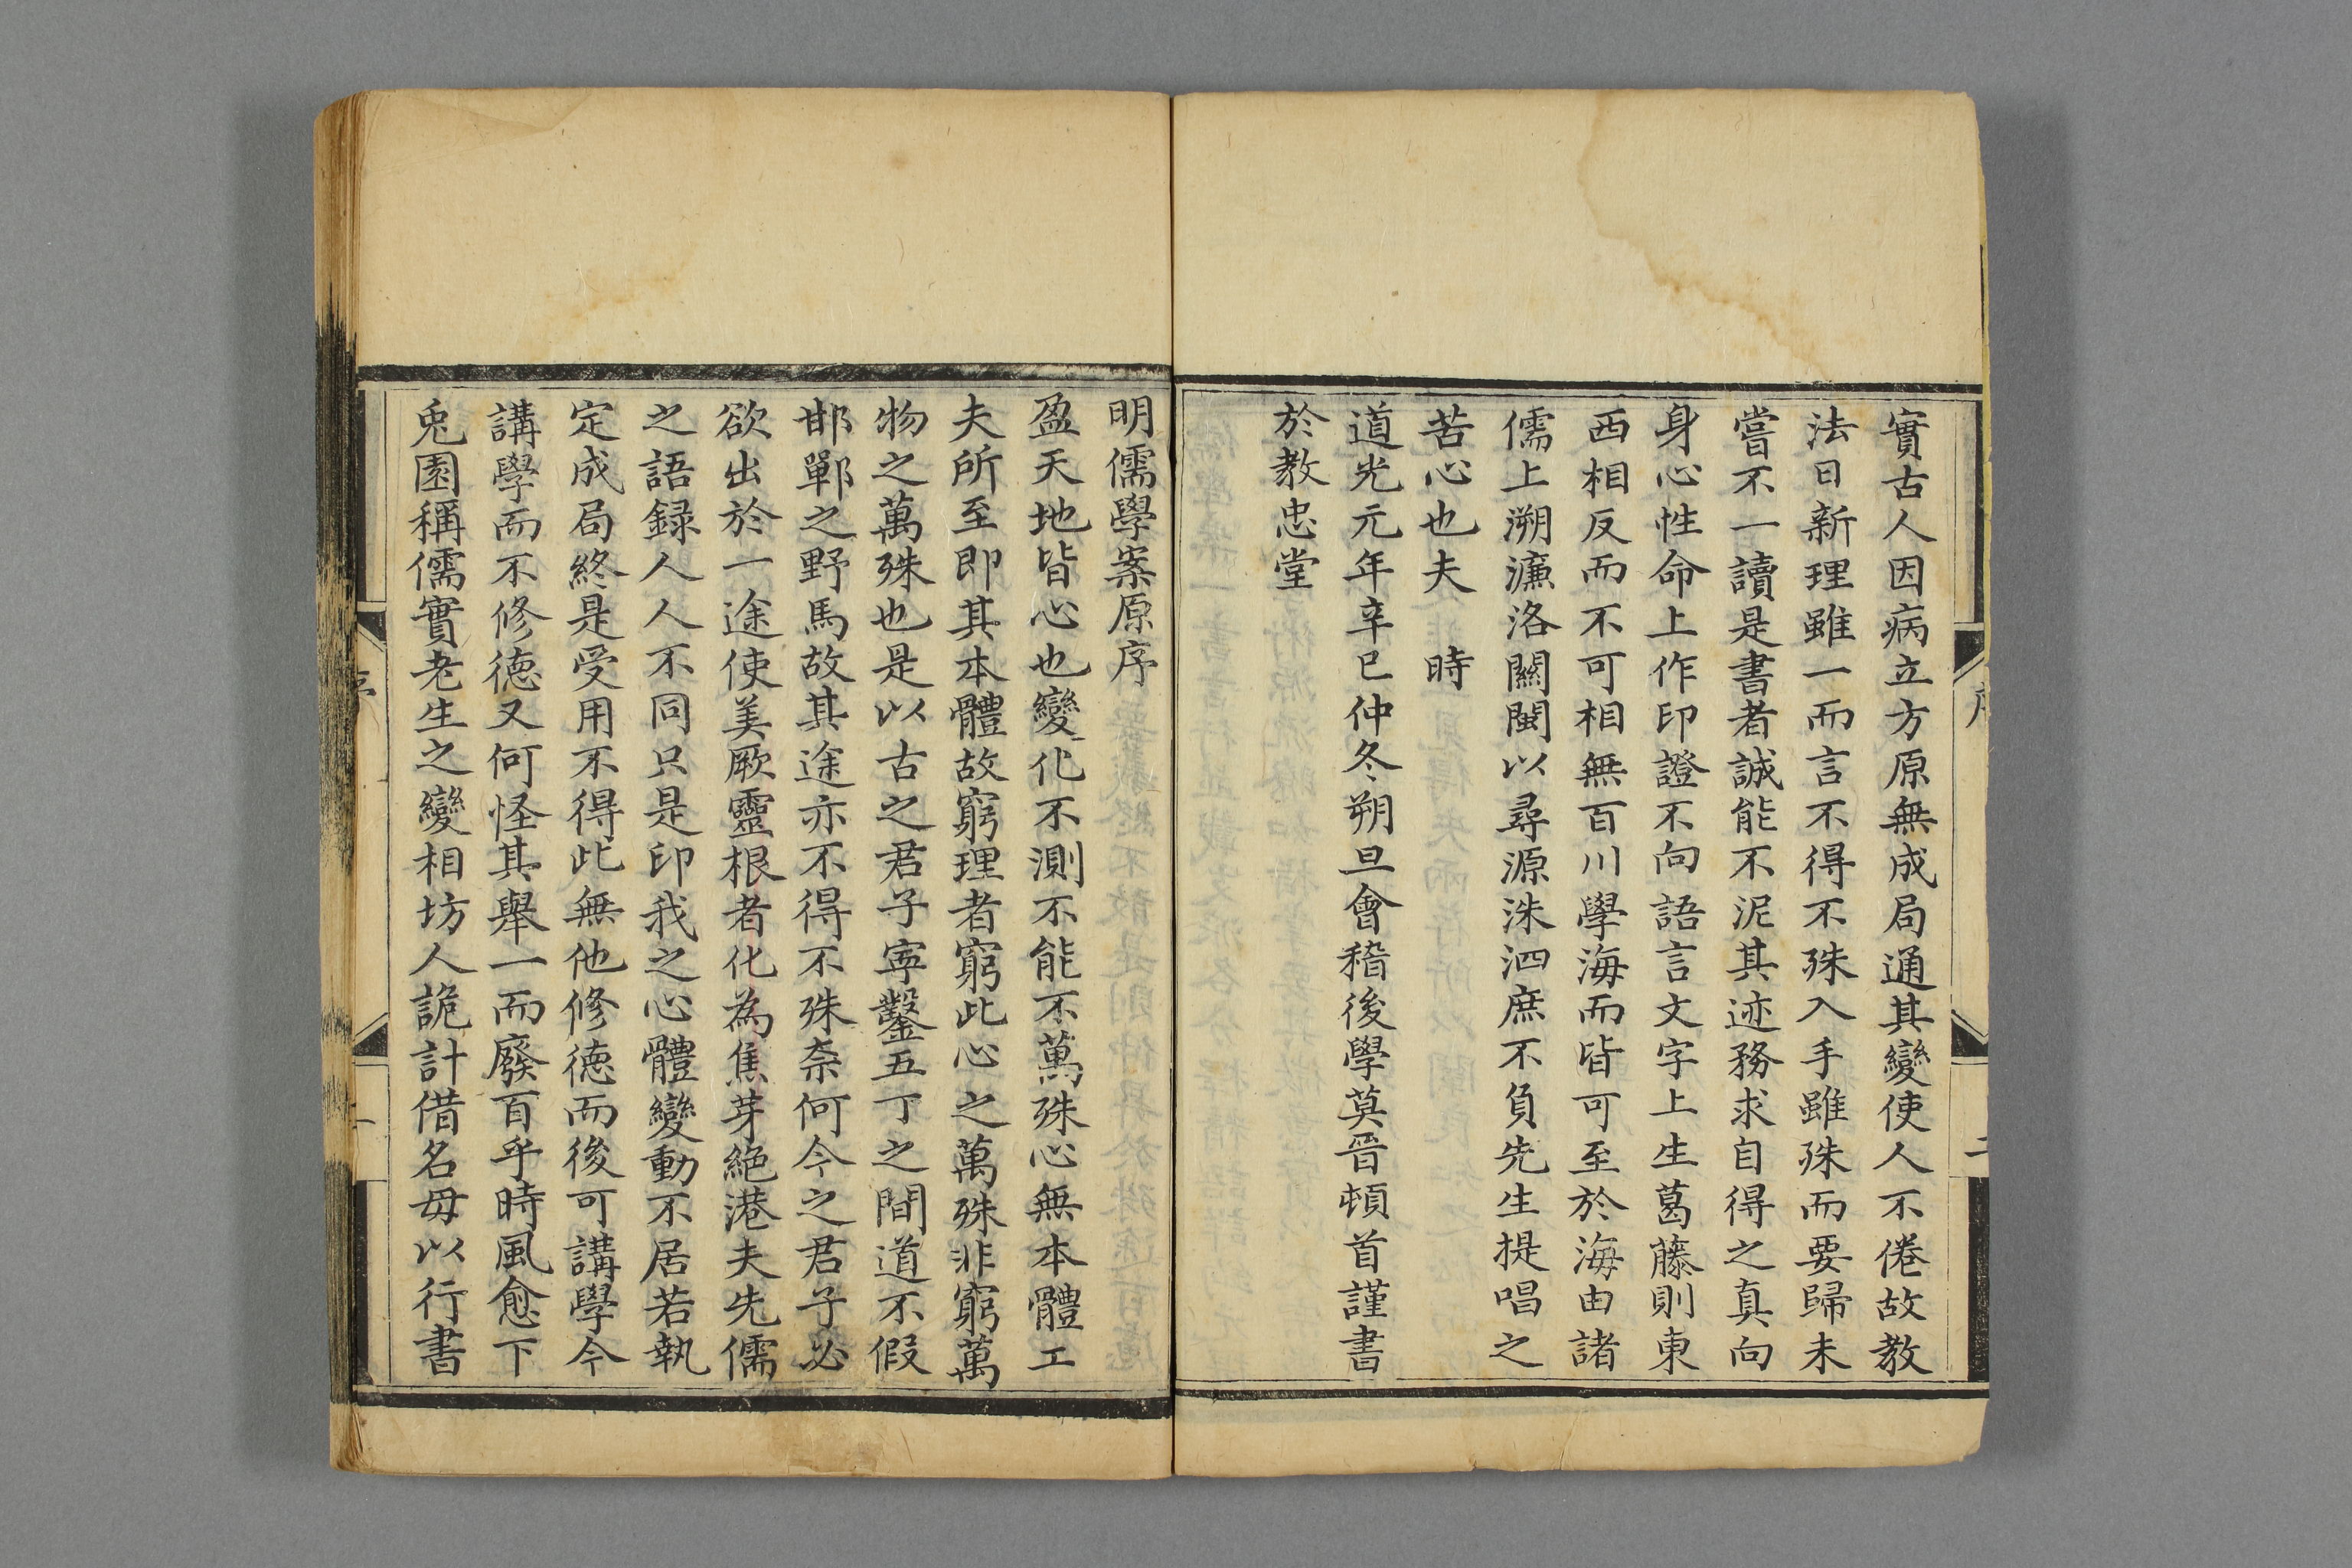 實古人因病立方原無成局通其變使人不倦故教
法日新理雖一而言不得不殊入手雖殊而要歸未
嘗不一讀是書者誠能不泥其迹務求自得之真向
身心性命上作印證不向語言文字上生葛藤則東
西相反而不可相無百川學海而皆可至於海由諸
儒上溯濂洛關閩以尋源洙泗庶不負先生提唱之
苦心也夫　時
道光元年辛巳仲冬朔旦會稽後學莫晉頓首謹書
於教忠堂
明儒學案原序
盈天地皆心也變化不測不能不萬殊心無本體工
夫所至即其本體故窮理者窮此心之萬殊非窮萬
物之萬殊也是以古之君子寧鑿五丁之間道不假
邯鄲之野馬故其途亦不得不殊柰何今之君子必
欲出於一途使美厥靈根者化為焦芽絕港夫先儒
之語録人人不同只是印我之心體變動不居若執
定成局終是受用不得此無他修德而後可講學今
講學而不修德又何怪其舉一而廢百乎時風愈下
兎園稱儒實老生之變相坊人詭計借名毋以行書